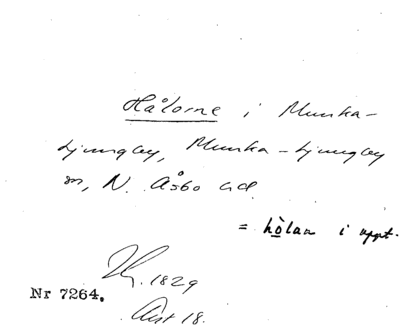 Hålorne i Munka-
Ljungby, Munka-Ljungby
sn, N. Åsbo hd.
= hòlan i uppt.
1829
Nr 7264.
Akt 18.